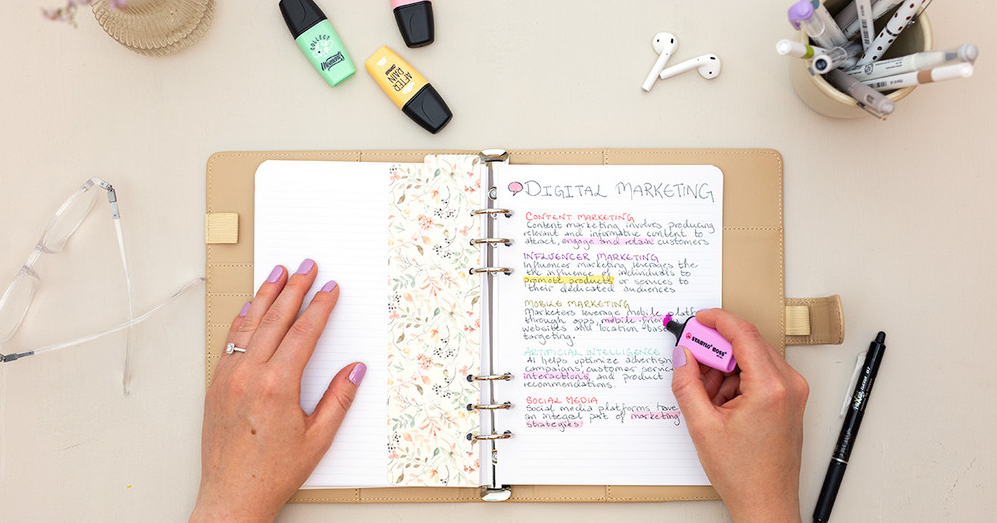 COLLEGE
Memories
AFTER
RAIN
DIGITAL MARKETING
CONTENT MARKETING
Content marketing involves producing
relevant and informative content to
attract, engage and retain customers
INFLUENCER MARKETING
Influencer marketing leverages the
the influence of individuals to
promote products or services to
their dedicated audiences
MOBILE MARKETING
Marketers leverage mobile
through apps, mobile
websites and location
targeting.
ARTIFICIAL INTELLIGENCE
AI helps optimize
campaigns, customer
interactions, and product
recommendations.
SOCIAL MEDIA
Social media platforms have
an integral part of marketing
strategies.
STABILO BOSS